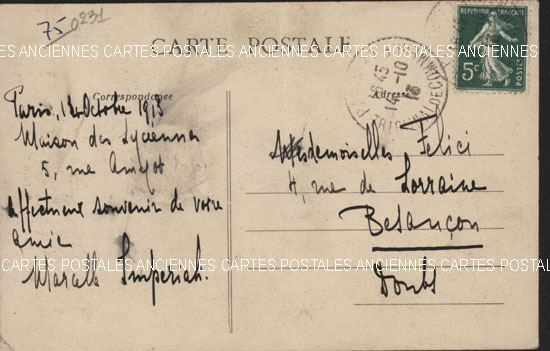 75 0231
CARTE POSTALE
ANCIENNES CARTES POSTALES ANCIENNES CARTES POSTALES ANCIENNES CARTES POSTALES
Correspondance
Adresse
REPUBLIQUE FRANÇAISE
5c
POSTES
15
14 -10
13
Paris, 14 Octobre 1913
Maison des Lycéennes
5, rue Amyot
Affectueux souvenir de votre
amie
Mesdemoiselles Felici
4, rue de Lorraine
Besançon
Doubs
ANCIENNES CARTES POSTALES ANCIENNES CARTES POSTALES ANCIENNES CARTES POSTALES